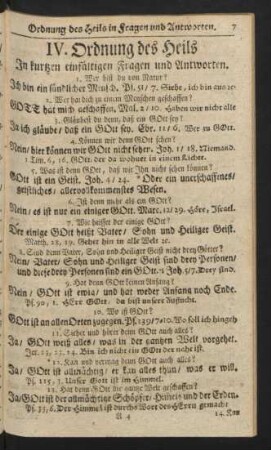 Ordnung des Heils in Fragen und Antworten. 7
IV. Ordnung des Heils
In kurtzen einfältigen Fragen und Antworten.
1. Wer bist du von Natur?
Ich bin ein sündlicher Mensch. Ps. 51/7. Siehe, ich bin aus
2. Wer hat dich zu einem Menschen geschaffen?
GOTT hat mich geschaffen, Mal. 2/10. Haben wir nicht alle
3. Gläubest du denn, daß ein GOtt sey?
Ja ich gläube/ daß ein GOtt sey. Ebr. 11/6. Wer zu GOtt.
4. Können wir denn GOtt sehen?
Nein/ hier können wir GOtt nicht sehen. Joh. 1/18. Niemand.
1 Tim. 6, 16. GOtt der da wohnet in einem Lichte.
5. Was ist denn GOtt, daß wir Ihn nicht sehen können?
GOtt ist ein Geist. Joh. 4/24. Oder ein unerschaffenes/
geistliches/ allervollkommenstes Wesen.
6. Ist denn mehr als ein GOtt?
Nein/ es ist nur ein einiger GOtt. Marc. 12/29. Höre, Israel.
7. Wie heisset der einige GOtt?
Der einige GOtt heißt Vater/ Sohn und Heiliger Geist.
Matth. 28, 19. Gehet hier in alle Welt
8. Sind denn Vater, Sohn und Heiliger Geist nicht drey Götter?
Nein/ Vater/ Sohn und Heiliger Geist sind drey Personen/
und diese drey Personen sind ein GOtt. 1 Joh. 5/7. Drey sind.
9. Hat denn GOtt keinen Anfang?
Nein/ GOtt ist ewig/ und hat weder Anfang noch Ende.
Ps. 90, 1. HErr GOtt, du bist unsere Zuflucht.
10. Wo ist GOtt?
GOtt ist an allen Orten zugegen. Ps. 139/7-10. Wo soll ich hingeh
11. Siehet und hört denn GOtt auch alles?
Ja/ GOtt weiß alles/ was in der gantzen Welt vorgehet.
Jer. 23, 23. 24. Bin ich nicht ein GOtt der nahe ist.
12. Kan und vermag denn GOtt auch alles?
Ja/ GOtt ist allmächtig/ er kan alles thun/ was er will.
Ps. 115, 3. Unser Gott ist im Himmel.
13. Hat denn GOtt die gantze Welt geschaffen?
Ja/ GOtt ist der allmächtige Schöpfer Himmels und der Erden.
Ps. 33, 6. Der Himmel ist durchs Wort des HErrn gemacht
A 4 14. Kan